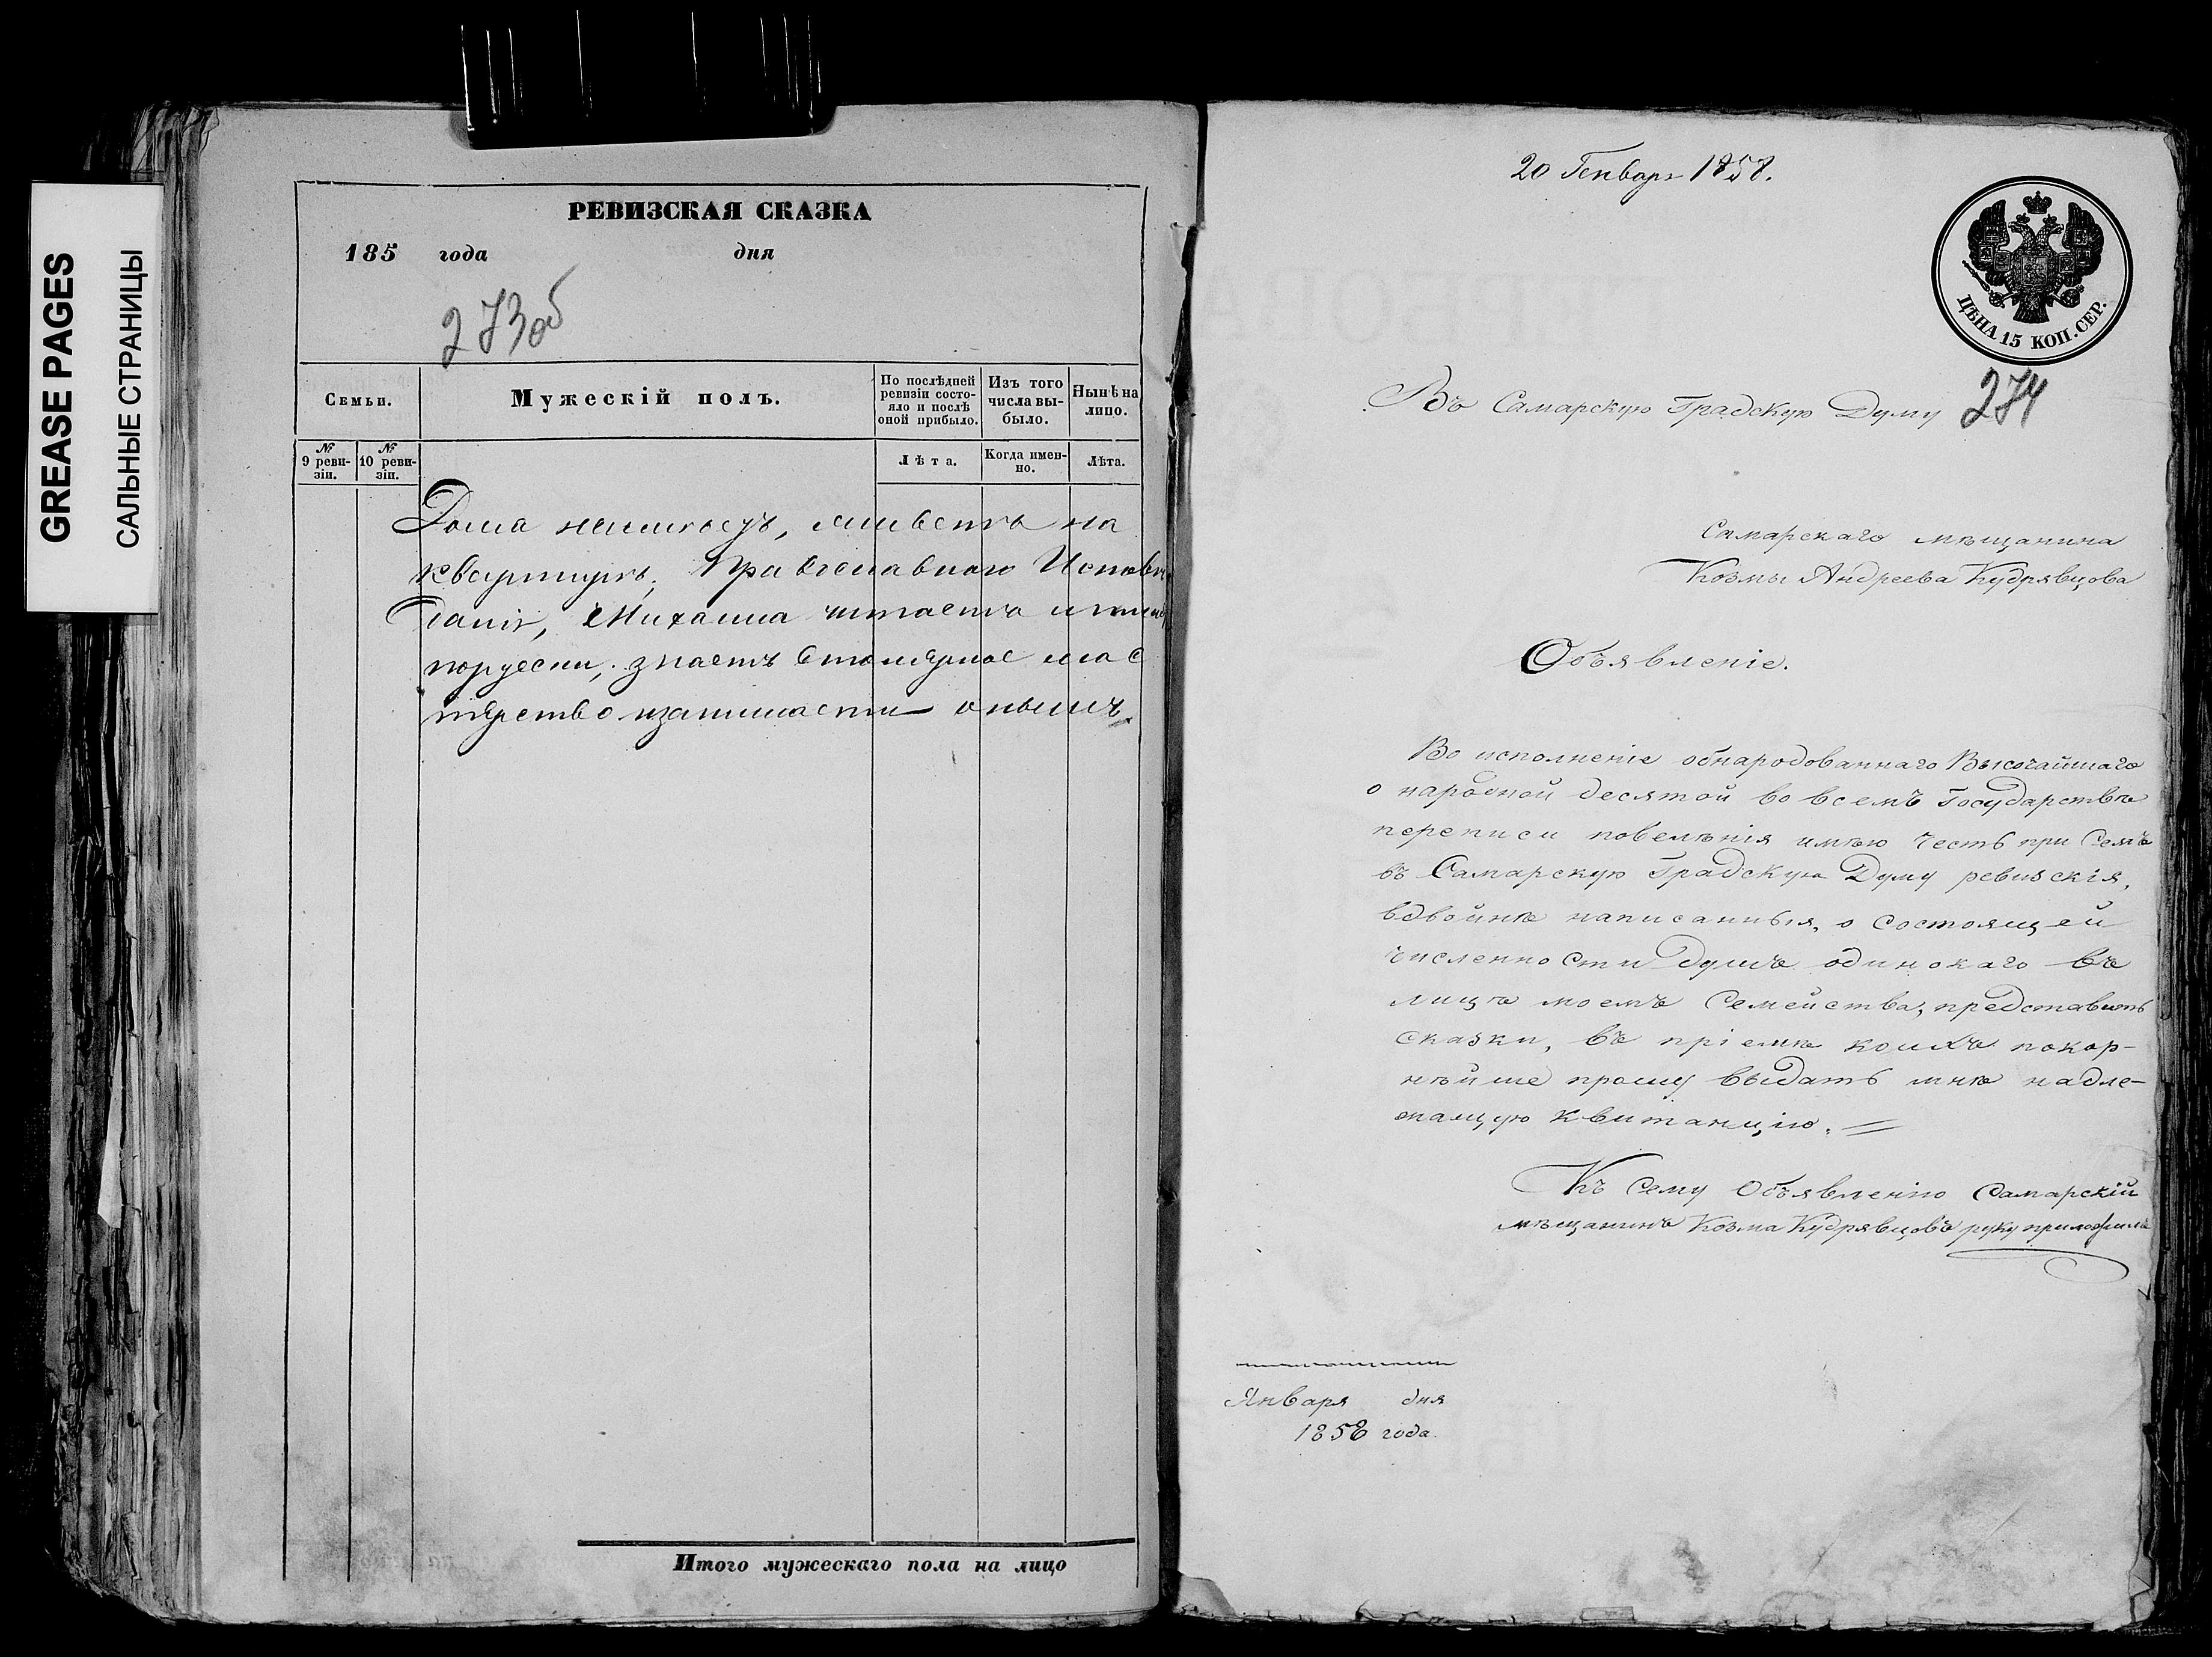 GREASE PAGES
САЛЬНЫЕ СТРАНИЦЫ
РЕВИЗСКАЯ СКАЗКА
185 года дня
273об
Семьи.
Мужескій полъ.
По послѣдней ревизіи состояло и послѣ оной прибыло.
Изъ того числа выбыло.
Нынѣ на лицо.
№ 9 ревизіи.
№ 10 ревизіи.
Лѣта.
Когда именно.
Лѣта.
Дома на
квартирѣ. Православнаго Исповѣ
данія, Михаила читаетъ и
порусски, знаетъ столярное мас
терство
Итого мужескаго пола на лицо
20 Генваря 1858.
ЦѢНА 15 КОП. СЕР.
274
Въ Самарскую Градскую Думу
Самарскаго мѣщанина
Козмы Андреева Кудрявцова
Объявленіе.
Во исполненіе обнародованнаго Высочайшаго
о народной десятой во всемъ Государствѣ
переписи повелѣнія имѣю честь при семъ
въ Самарскую Градскую Думу ревизскія,
вдвойнѣ написанныя, о состоящей
численности душъ одинокаго въ
лицѣ моемъ семейства, представить
сказки, въ пріемѣ коихъ покор-
нѣйше прошу выдать мнѣ надле-
жащую квитанцію. =
Къ сему объявленію Самарскій
мѣщанинъ Козма Кудрявцовъ руку приложилъ
Января дня
1858 года.